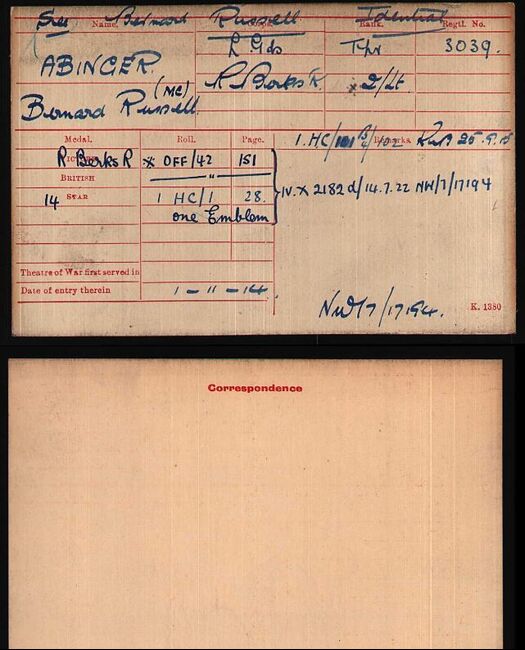 See Bernard Russell Identical
Name. Rank. Regtl. No.
ABINGER. L Gds Tpr 3039.
(MC) R Berks R. x 2/Lt
Bernard Russell.
Medal. Roll. Page. Remarks.
1. HC/101 102 25.9.15
VICTORY R Berks R x OFF/42 151
BRITISH "
14 STAR 1 HC/1 28.
one Emblem
IV. X 2182 d/14.7.22 NW/7/17194
Theatre of War first served in
Date of entry therein 1-11-14.
NW/7/17194.
K. 1380
Correspondence